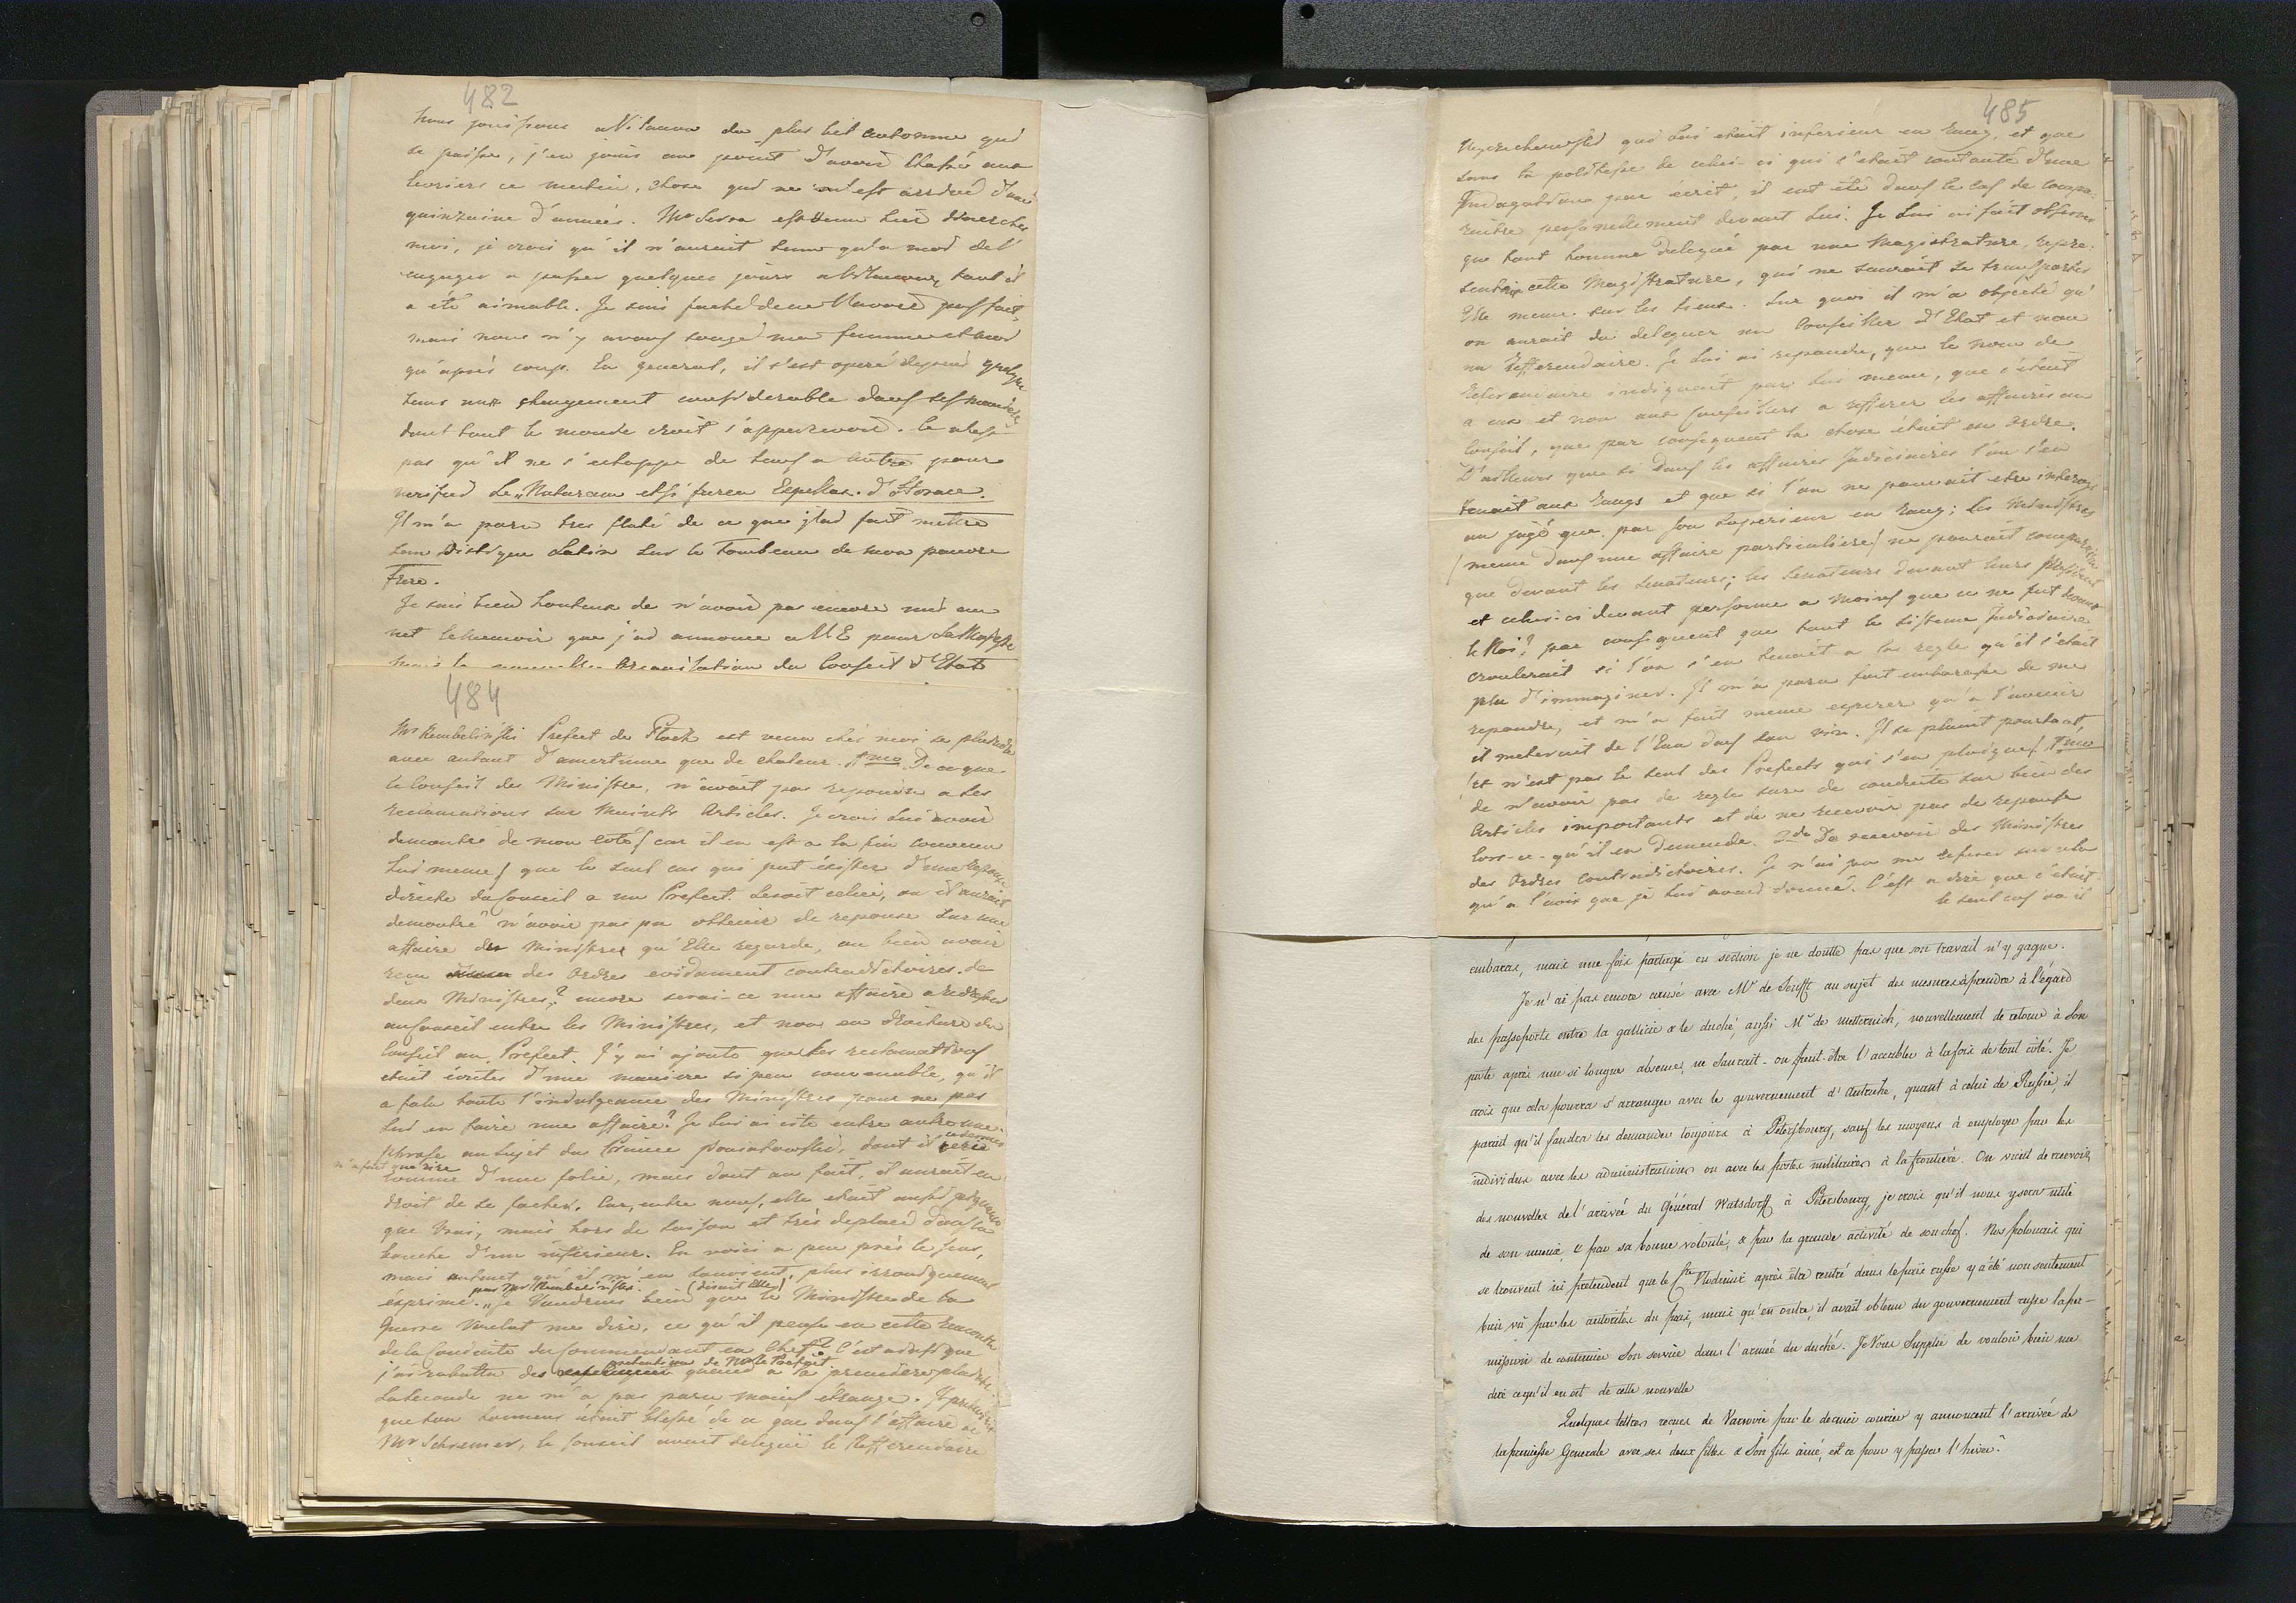 482
nous jouissons a Vilanow du plus bel automne qui
se puisse, j'en jouis au point d'avoir chassé aux
levriers ce matin, chose qui ne m'est arrivée d'une
quinzaine d'années. Mr Serra est venu hier chercher
moi, je crois qu'il n'aurait tenu qu'a moi de l'
engager a passer quelques jours a Vilanow, tant il
a été aimable. Je suis faché de ne l'avoir pas fait,
mais nous n'y avons songé ma femme et moi
qu'après coup. En general, il s'est operé depuis quelque
tems un changement considerable dans ses manieres
dont tout le monde doit s'appercevoir. Ce n'est
pas qu'il ne s'echappe de tems a autre pour
verifier Le „Naturam etsi furca Expellas. d'Horace.
Il m'a paru tres flaté de ce que j'ai fait mettre
son Distique Latin sur le Tombeau de mon pauvre
Frere.
Je suis bien honteux de n'avoir pas encore mis au
net le memoir que j'ai annoncé a V E pour Sa Majesté
mais la nouvelle organisation du Conseil d'Etat
484
Mr Rembelinski Prefect de Plock est venu chés moi se plaindre
avec autant d'amertume que de chaleur. 1mo De ce que
le Conseil des Ministres, n'avait pas repondu a ses
reclamations sur Maints Articles. Je crois lui avoir
demontré de mon coté (car il en est a la fin convenu
lui meme) que le seul cas qui put éxister d'une reponse
directe du Conseil a un Prefect. Serait celui, ou il aurait
demontré n'avoir pas pu obtenir de reponse sur une
affaire des Ministres qu'Elle regarde, ou bien avoir
reçu des Ordres evidament contradictoires de
deux Ministres? encore serai-ce une affaire a redresser
au Conseil entre les Ministres, et non en droiture du
Conseil au Prefect. J'y ai ajouté que ses reclamations
etait écrites d'une maniere si peu convenable, qu'il
a falu toute l'indulgence des Ministres pour ne pas
lui en faire une affaire? Je lui ai cité entre autre une
phrase au sujet du Prince Poniatowski, dont il
n'a fait que rire
comme d'une folie, mais dont au fait, il aurait eu
droit de se facher. Car, entre nous, elle etait aussi piquante
que vrai, mais hors de saison et très deplacé dans la
bouche d'un inférieur. En voici a peu près le sens,
mais autant qu'il m'en souvient, plus ironiquement
par Mr Rembelinski. (disait Elle)
éxprimé. „Je Voudrais bien que le Ministre de la
Guerre Voulut me dire, ce qu'il pense en cette rencontre
de la Conduite du Commendant en Chef? C'est ainsi que
pretentions de Mr le Préfect
j'ai rabattu des quand a la premiere plainte.
La seconde ne m'a pas paru moins étrange. Il pretendait
que son honneur était blessé de ce que dans l'affaire de
Mr Schremer, le Conseil avait delegué le Refferendaire
485
qui lui etait inferieur en Rang, et que
sans la politesse de celui-ci qui s'était contanté d'une
Indagation par écrit, il eut été dans le cas de compa-
raitre personellement devant lui. Je lui ai fait observer
que tout homme delegué par une Magistrature, repre-
sentait cette Magistrature, qui ne saurait se transporter
Elle meme sur les lieux. Sur quoi il m'a objecté qu'
on aurait du deleguer un Conseiller d'Etat et non
un Refferendaire. Je lui ai repondu, que le nom de
Referendaire indiquait par lui meme, que c'était
a eux et non aux Conseillers a refferer les affaires au
Conseil, que par consequent la chose était en ordre.
D'ailleurs que si dans les affaires Judiciaires l'on s'en
tenait aux Rangs et que si l'on ne pouvait etre interrogé
ou jugé que par son Superieur en Rang; Les Ministres
(meme dans une affaire particuliere) ne pourait comparaitre
que devant les Senateurs; les Senateurs devant leurs president
et celui-ci devant personne a moins que ce ne fut devant
le Roi? par consequent que tout le sisteme Judiciaire
croulerait si l'on s'en tenait a la regle qu'il s'etait
plu d'immaginer. Il m'a paru fort embarassé de me
repondre, et m'a fait meme esperer qu'a l'avenir
il meterait de l'Eau dans son vin. Il se plaint pourtant
(et n'est pas le seul des Prefects qui s'en plaigne) 1mo
de n'avoir pas de regle sure de conduite sur bien des
Articles importants et de ne recevoir pas de reponse
lors-ce-qu'il en demande. 2do De recevoir des Ministres
des Ordres contradictoires. Je n'ai pu me refuser sur cela
qu'a l'avis que je lui avais donné. C'est a dire que c'était
le seul cas ou il
embaras, mais une fois partagé en section je ne doutte pas que son travail n'y gagne.
Je n'ai pas encore causé avec Mr de Senfft au sujet des mesures à prendre à l'égard
des passeports entre la gallicie & le duché, aussi Mr de Metternich, nouvellement de retour à son
poste après une si longue absence, ne saurait-on peut-être l'accabler à la fois de tout côté. Je
crois que cela pourra s'arranger avec le gouvernement d'Autriche, quant à celui de Russie, il
parait qu'il faudra les demander toujours à Petersbourg, sauf les moyens à employer par les
individus avec les administrations ou avec les postes militaires à la frontière. On vient de recevoir
des nouvelles de l'arrivée du Général Watsdorff à Petersbourg, je crois qu'il nous y sera utile
de son mieux, & par sa bonne volonté, & par la grande activité de son chef. Nos polonais qui
se trouvent ici pretendent que le Pce Vlodimir après être rentré dans le païs russe y a été non seulement
bien vu par les autorités du païs, mais qu'en outre, il avait obtenu du gouvernement russe la per-
mission de continuer son service dans l'armée du duché. Je Vous supplie de vouloir bien me
dire ce qu'il en est de cette nouvelle
Quelques lettres reçues de Varsovie par le dernier courier y annoncent l'arrivée de
la princesse Generale avec ses deux filles & Son fils ainé, est ce pour y passer l'hiver?